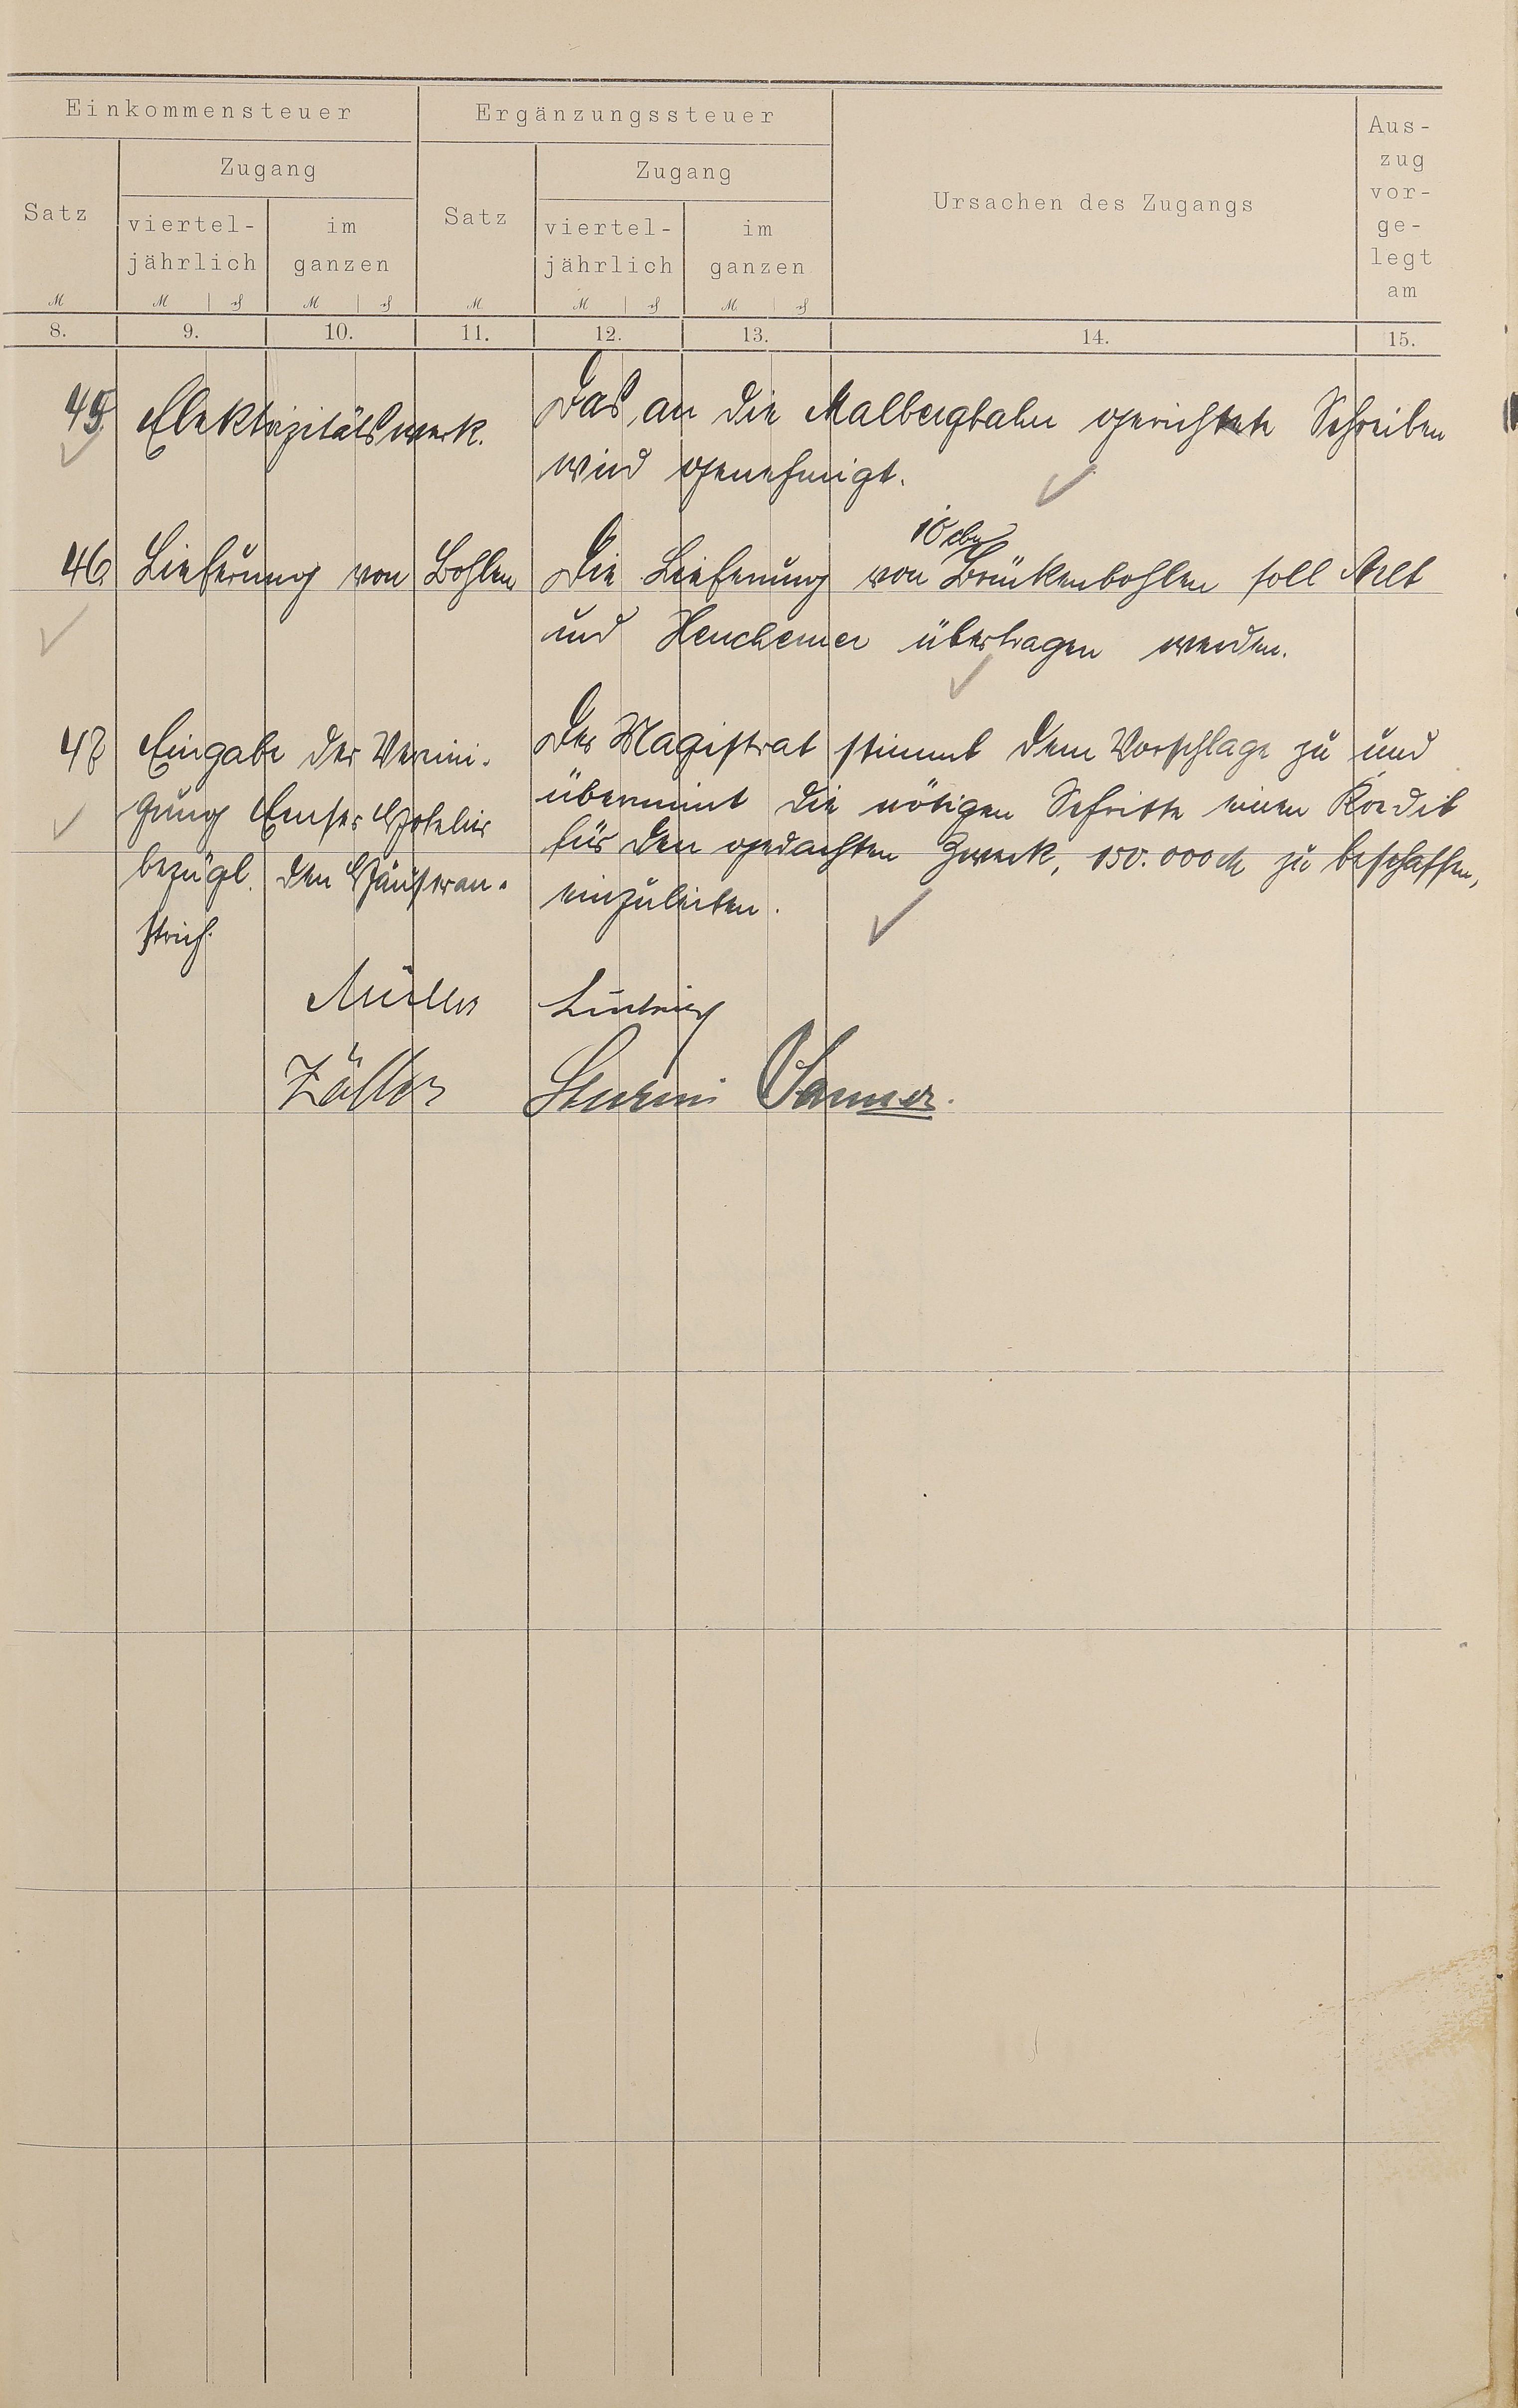 Einkommensteuer Ergänzungssteuer
Aus-
Zugang Zugang
zug
vor-
Satz Satz Ursachen des Zugangs
viertel- im viertel- im
ge-
jährlich ganzen jährlich ganzen
legt
am
M M M M M M
8. 9. 10. 11. 12. 13. 14. 15.
45. Elektrizitätswerk.
Das an die Malbergbahn gerichtete Schreiben
wird genehmigt.
46. Lieferung von Bohlen
10 cbm
Die Lieferung von Brückenbohlen soll Arlt
und Henchemer übertragen werden.
47 Eingabe der Vereini-
gung Emser Hoteliers
bezügl. den Häuseran-
strich.
Der Magistrat stimmt dem Vorschlage zu und
übernimmt die nötigen Schritte einen Kredit
für den gedachten Zweck, 150.000 M zu beschaffen,
einzuleiten.
Müller Ludwig
Zöller Sturm Sanner.